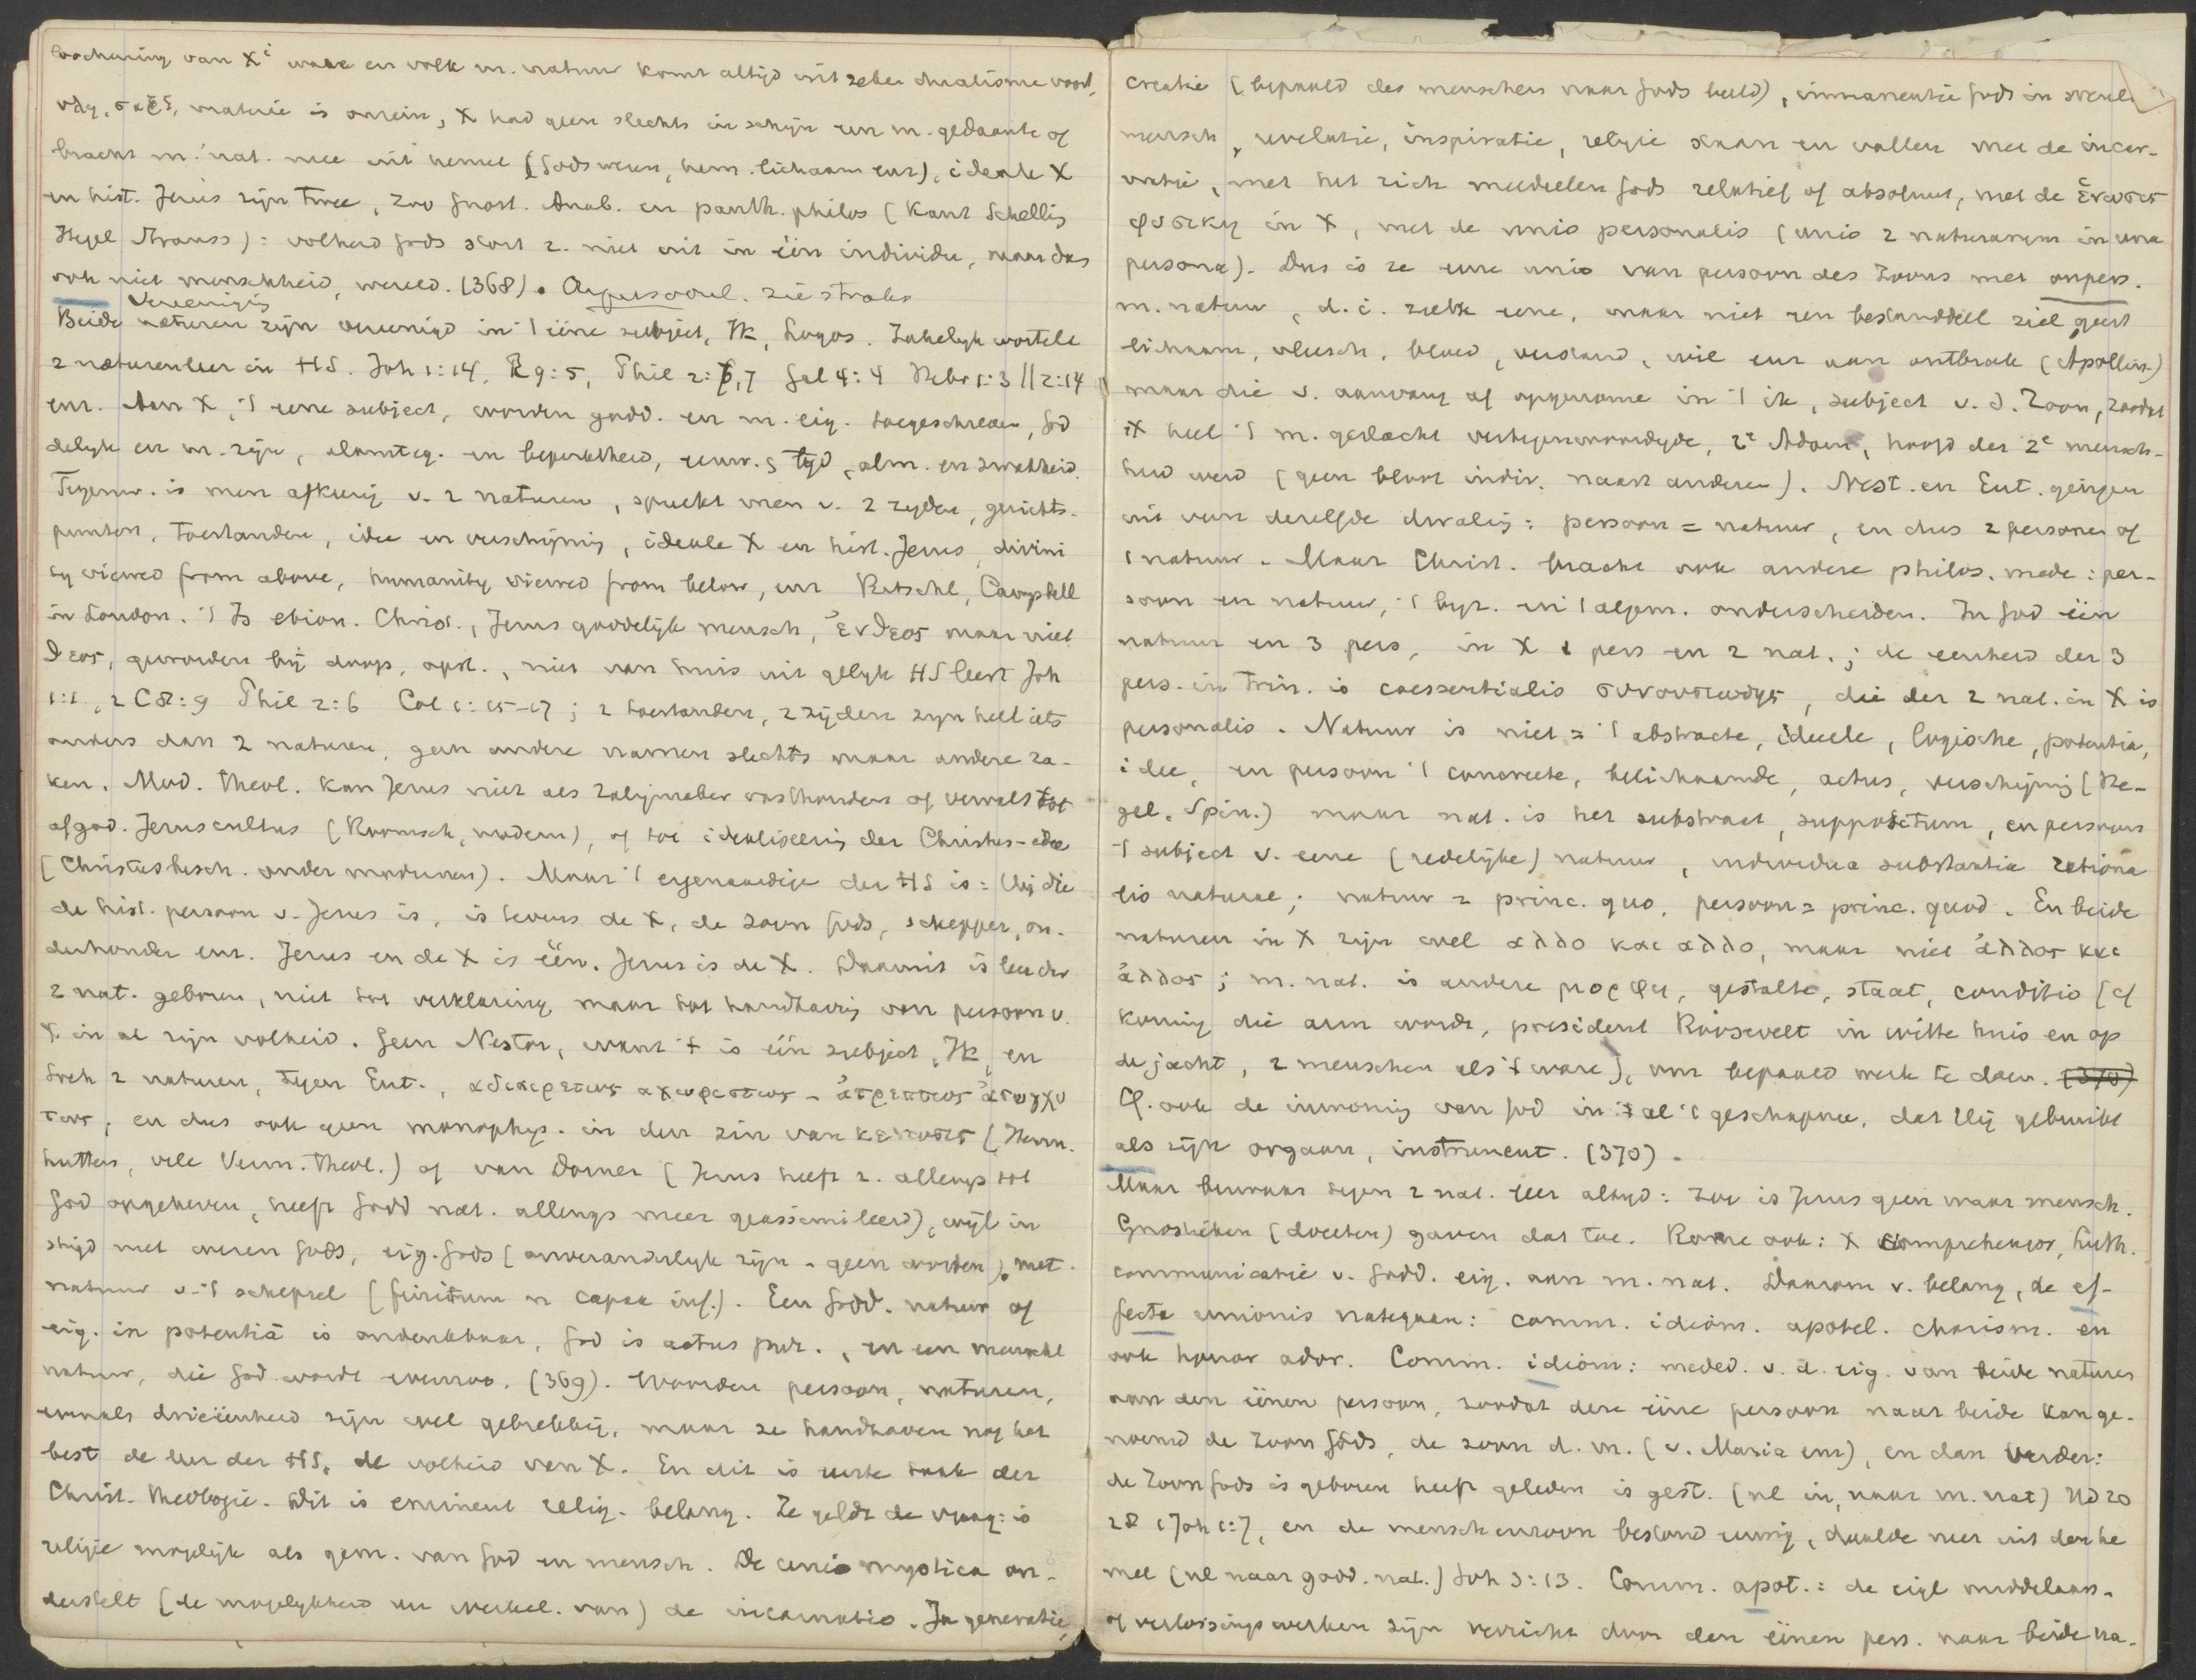 loochening van Xⁱ ware en volk m. natuur komt altijd uit zeker dualisme voort,
vdg. σαρξ, materie is onrein, X had geen slechts in schijn een m. gedaante of
bracht m. nat. mee uit hemel (Gods wezen, hem. lichaam enz), ideale X
en hist. Jezus zijn twee, zoo Gnost. Anab. en panth. philos (Kant Schellig
Hegel Strauss): volheid Gods stort z. niet uit in één individu, maar dus
ook niet menschheid, wereld. (368). zie straks
Vereenigig
Beide naturen zijn vereenigd in 't ééne subject, Ik, Logos. Zakelyk wortelt
2 naturenleer in HS. Joh 1:14, R 9:5, Phil 2:6,7 Gal 4:4 Hebr 1:3 || 2:14
enz. Aan X, 't eene subject, worden godd. en m. eig. toegeschreven, God
delyk en m. zijn, alomteg. en beperktheid, eeuw. & tyd, alm. en zwakheid.
Tegenw. is men afkeerig v. 2 naturen, spreekt men v. 2 zyden, gezichts-
punten, toestanden, idee en verschijning, ideale X en hist. Jezus, divini
ty viewed from above, humanity viewed from below, enz Ritschl, Campbell
in London. 't Is ebion. Christ., Jezus goddelijk mensch, ἔνθεος maar niet
θεος, geworden bij doop, opst., niet van huis uit gelyk HS leert Joh
1:1, 2 C 8:9 Phil 2:6 Col 1:15-17; 2 toestanden, 2 zijden zyn heel iets
anders dan 2 naturen, geen andere namen slechts maar andere za-
ken. Mod. theol. kan Jezus niet als Zaligmaker vasthouden of vervalt tot
afgod. Jezuscultus (Roomsch, modern), of tot idealiseering der Christus-idee
(Christusbesch. onder modernen). Maar 't eigenaardige der HS is: Hij die
de hist. persoon v. Jezus is, is tevens de X, de zoon Gods, schepper, on-
derhouder enz. Jezus en de X is één. Jezus is de X. Daaruit is leer der
2 nat. geboren, niet tot verklaring maar tot handhavig van persoon v.
X in al zijn volheid. Geen Nestor, want 't is één subject, Ik, en
toch 2 naturen, tegen Eut., αδιαιρετως αχωριστως - ἀτρεπτως ἀσυγχυ
τως, en dus ook geen monophys. in den zin van κενωσις (Hern.
hutters, vele Verm. theol.) of van Dorner (Jezus heeft z. allengs tot
God opgeheven, heeft Godd nat. allengs meer geassimileerd), wijl in
strijd met wezen Gods, eig. Gods (onveranderlyk zijn - geen worden), met
natuur v. 't schepsel (finitum n capax inf.). Een Godd. natuur of
eig. in potentiâ is ondenkbaar, God is actus pur., en een menschl
natuur, die God wordt evenzoo. (369). Woorden persoon, naturen,
evenals drieëenheid zijn wel gebrekkig, maar ze handhaven nog het
best de leer der HS, de volheid van X. En dit is eerste taak der
Christ. theologie. Dit is eminent relig. belang. Ze geldt de vraag: is
religie mogelijk als gem. van God en mensch. De unio mystica on-
derstelt (de mogelykheid en werkel. van) de incarnatio. Ja generatie,
creatie (bepaald des menschen naar Gods beeld), immanentie Gods in wereld
mensch, revelatie, inspiratie, religie staan en vallen met de incar-
natie, met het zich mededeelen Gods relatief of absoluut, met de ἕνωσις
φυσικη in X, met de unio personalis (unio 2 naturarum in una
persona). Dus is ze eene unio van persoon des Zoons met onpers.
m. natuur, d. i. zulk eene, waar niet een bestanddeel ziel, geest
lichaam, vleesch, bloed, verstand, wil enz aan ontbrak (Apollin.)
maar die v. aanvang af opgenomen in 't ik, subject v. d. Zoon, zoodat
X heel 't m. geslacht vertegenwoordigde, 2e Adam, hoofd der 2e mensch-
heid werd (geen bloot indiv. naast anderen). Nest. en Eut. gingen
uit van dezelfde dwaling: persoon = natuur, en dus 2 personen of
1 natuur. Maar Christ. bracht ook andere philos. mede: per-
soon en natuur, 't byz. en 't algem. onderscheiden. In God één
natuur en 3 pers, in X 1 pers en 2 nat.; de eenheid der 3
pers. in Trin. is coessentialis συνουσιωδης, die der 2 nat. in X is
personalis. Natuur is niet = 't abstracte, ideele, logische, potentia,
idee, en persoon 't concreete, belichaamde, actus, verschijning (He-
gel, Spin.) maar nat. is het substraat, suppositum, en persoon
't subject v. eene (redelijke) natuur, individua substantia rationa
lis naturae; natuur = princ. quo, persoon = princ. quod. En beide
naturen in X zijn wel αλλο και αλλο, maar niet ἀλλος και
ἀλλος; m. nat. is andere μορφη, gestalte, staat, conditio (cf
koning die arm wordt, president Roosevelt in witte huis en op
de jacht, 2 menschen als 't ware), om bepaald werk te doen. (370)
Cf. ook de inwoning van God in al 't geschapene, dat Hij gebruikt
als zijn orgaan, instrument. (370).
Maar bezwaar tegen 2 nat. leer altyd: zoo is Jezus geen waar mensch.
Gnostieken (doceten) gaven dat toe. Rome ook: X comprehensor, Luth.
communicatie v. Godd. eig. aan m. nat. Daarom v. belang, de ef-
fecta unionis nategaan: comm. idiom. apotel. charism. en
ook honor ador. Comm. idiom: meded. v. d. eig. van beide naturen
aan den éénen persoon, zoodat deze ééne persoon naar beide kan ge-
noemd de Zoon Gods, de zoon d. m. (v. Maria enz), en dan verder:
de Zoon Gods is geboren heeft geleden is gest. (nl in, naar m. nat) Hd 20
28 1 Joh 1:7, en de menschenzoon bestond eeuwig, daalde neer uit den he
mel (nl naar godd. nat.) Joh 3:13. Comm. apot.: de eigl middelaars-
of verlossingswerken zijn verricht door den éénen pers. naar beide na-